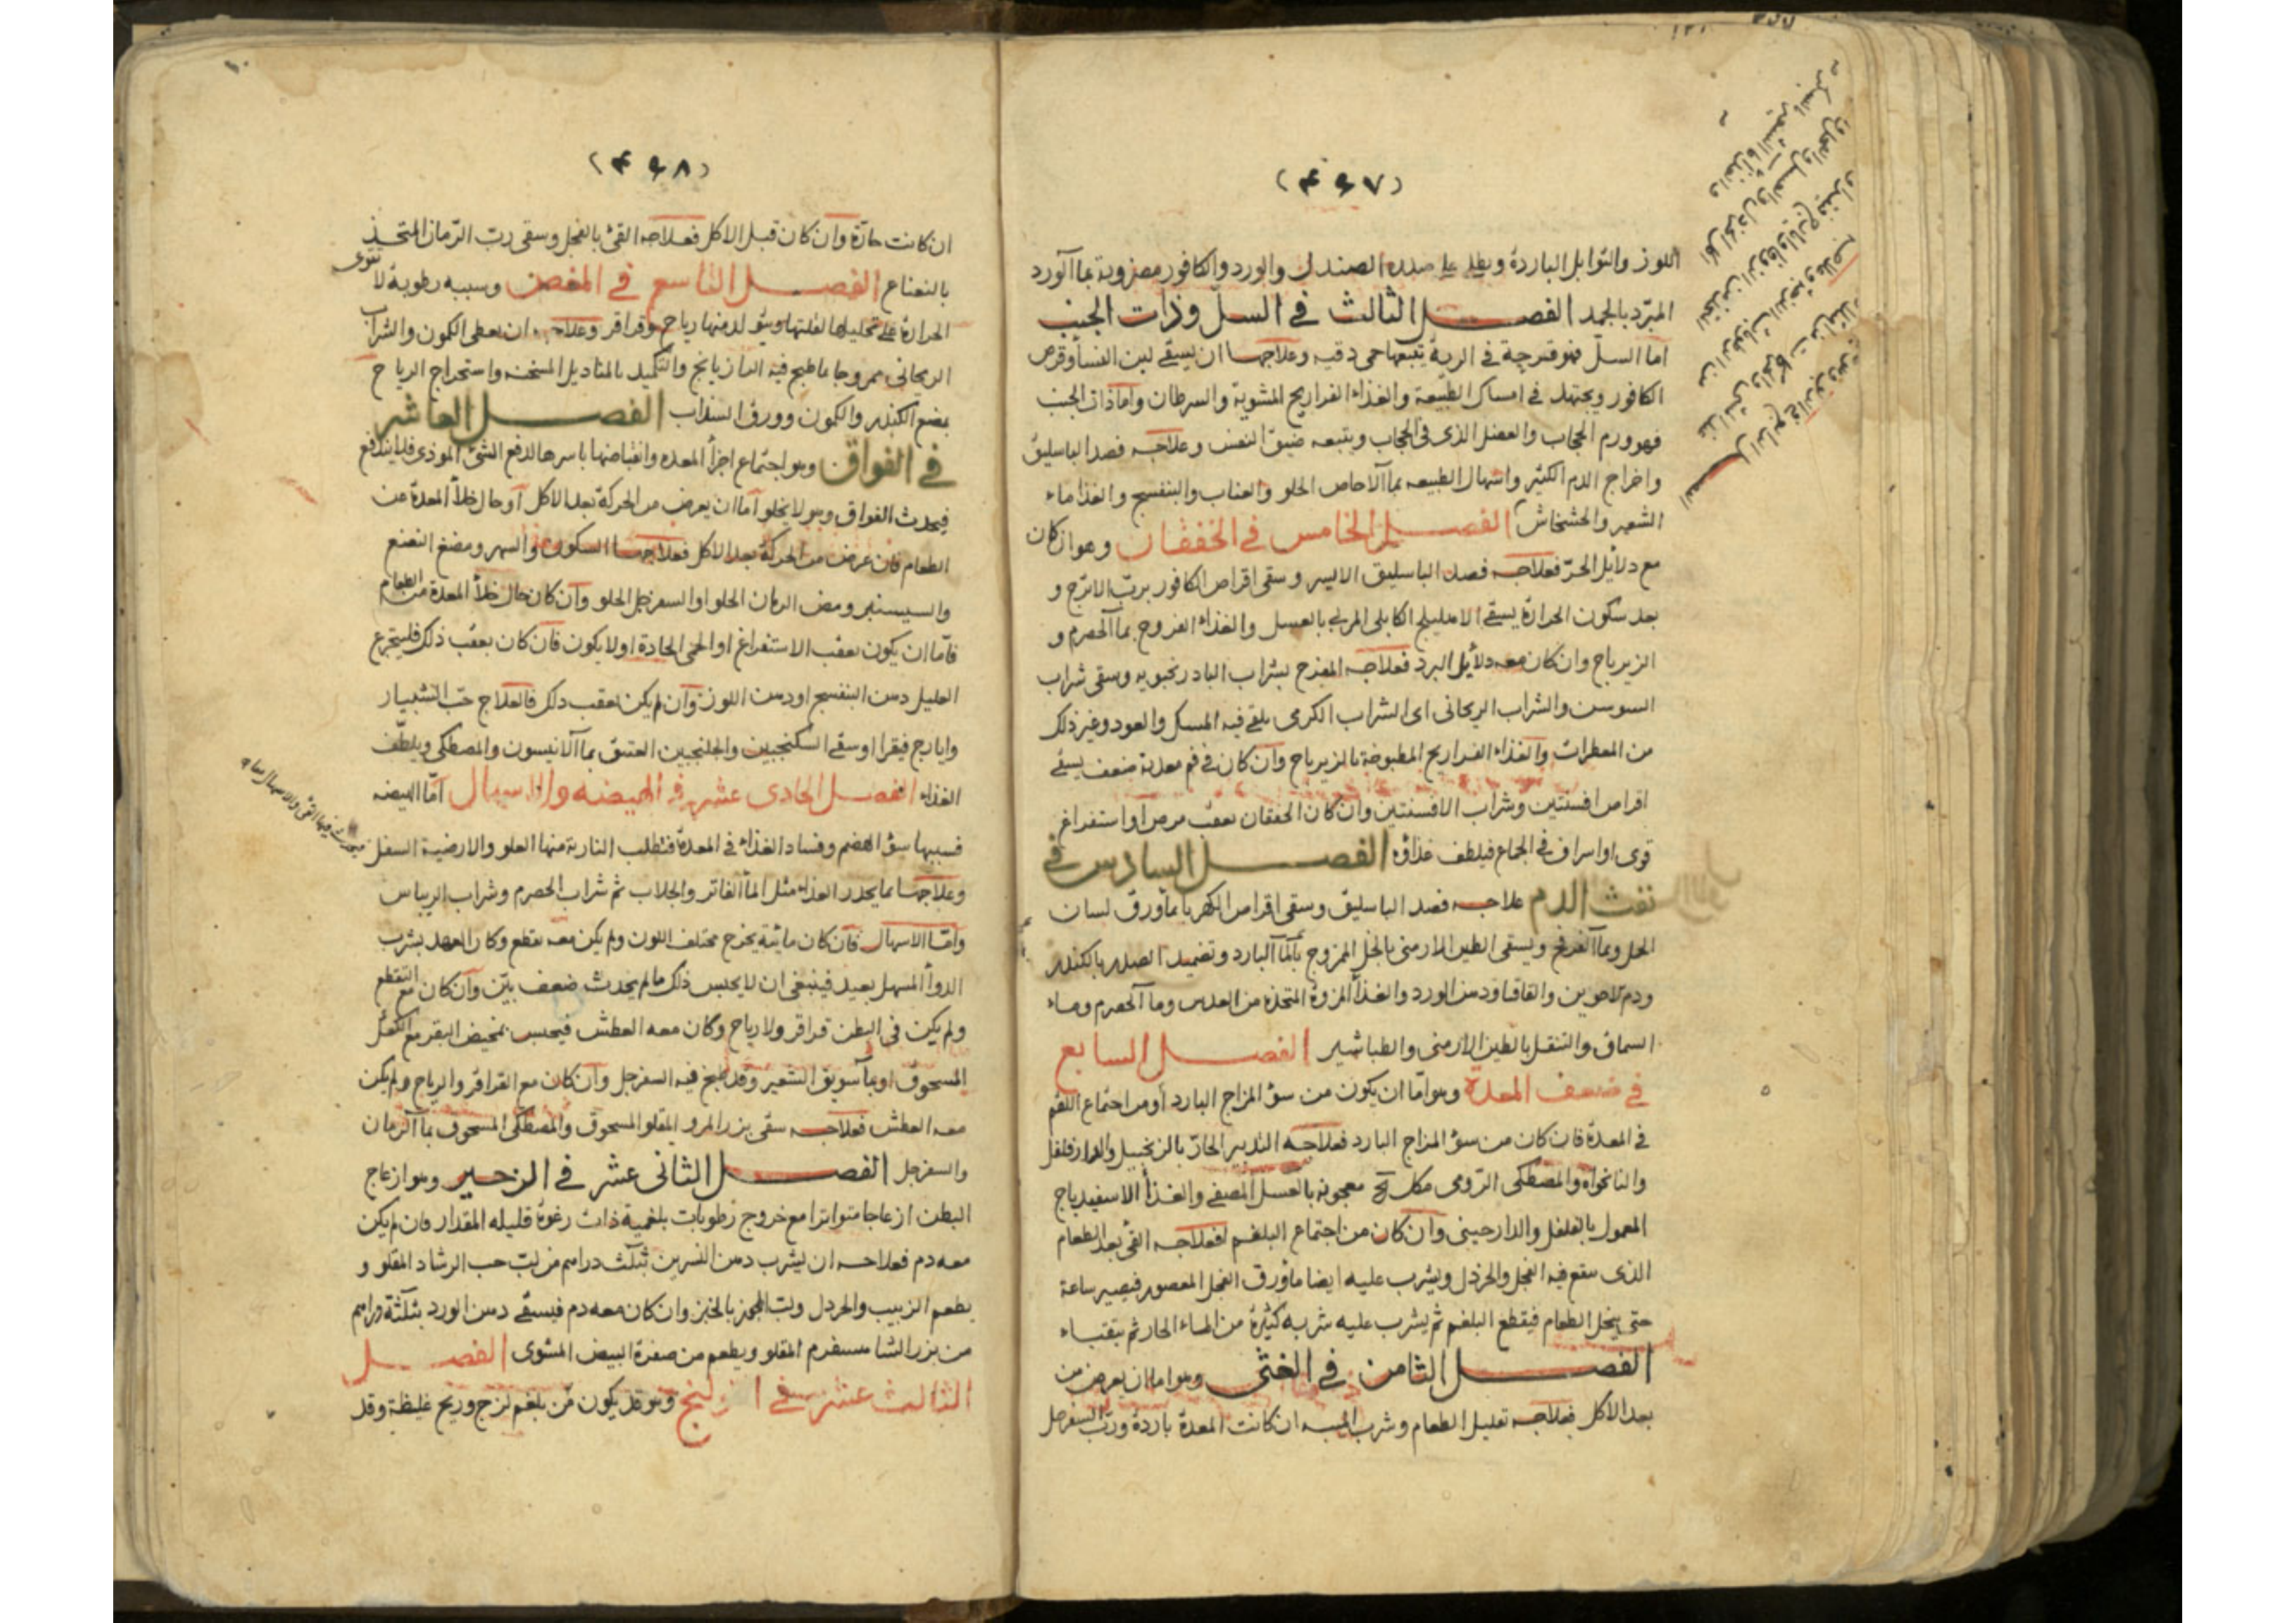 (٤٩٧)
اللوز والتوابل الباردة ويطلى على صدره الصندل والورد والكافور مضروبة بماآلورد
المبرّد بالجمد الفصل الثالث في السلّ وذات الجنب
اما السلّ فهو قرحة في الرية يتبعها حمى دقيه وعلاجها ان يسقى لبن النسأ وقرص
الكافور ويجتهد في امساك الطبيعة والغذاء الفراريج المشوية والسرطان واماذات الجنب
فهو ورم الحجاب والعضل الذى فى الحجاب ويتبعه ضيق النفس وعلاجه فصد الباسليق
واخراج الدم الكثير واسهال الطبيعه بماآلاجاص الحلو والعناب والبنفسج والغذاماء
الشعير والخشخاش الفصل الخامس في الخفقان وهو ان كان
مع دلايل الحرّ فعلاجه فصد الباسليق الايسر وسقى اقراص الكافور بربّ الاترج و
بعد سكون الحرارة يسقى الاهليلج الكابلى المربى بالعسل والغذاء الفروج بماآلحصرم و
الزيرباج وان كان معه دلأيل البرد فعلاجه المفرح بشراب البادرنجبويه وسقى شراب
السوسن والشراب الريحانى اى الشراب الكرمى يلقى فيه المسك والعود وغير ذلك
من المعطرات والغذاء الفراريج المطبوخة بالزيرباج وان كان فى فم معدته ضعف يسقى
اقراص افسنتين وشراب الافسنتين وان كان الخفقان بعقب مرض او استفراغ
قوى او اسراف فى الجماع فيلطف غذاؤه الفصل السادس في
نفث الدم علاجه فصد الباسليق وسقى اقراص الكهربا بماورق لسان
الحمل وبماآلفرفخ ويسقى الطين الارمنى بالخل الممزوج بآلماآلبارد وتضميد الصدر بالكندر
ودم الاخوين والقاقيا ودهن الورد والغذأ المزورة المتخذه من العدس وماآلحصرم وماء
السماق والتنقل بالطين الارمنى والطباشير الفصل السابع
في ضعف المعدة وهو امّا ان يكون من سوٴ المزاج البارد أو من اجتماع البلغم
فى المعدة فان كان من سوٴ المزاج البارد فعلاجه التدبير الحارّ بالزنجبيل والدارفلفل
والنانخواه والمصطكى الرّومى معجونه بالعسل المصفى والغذأ الاسفيدباج
المعمول بالفلفل والدارجينى وان كان من اجتماع البلغم فعلاجه القئ بعد الطعام
الذى يقع فيه الفجل والخردل ويشرب عليه ايضا ماورق الفجل المعصور فيصير ساعة
حتى ينحل الطعام فيقطع البلغم ثم يشرب عليه شربه كثيرة من الماء الحار ثم يتقياء
الفصل الثامن في الغثى وهو اما ان يعرض من
بعد الاكل فعلاجه تقليل الطعام وشرب الميبه ان كانت المعدة باردة وربّ السفرجل
(٤٩٨)
ان كانت حارّة وان كان قبل الاكل فعلاجه القئ بالفجل وسقى ربّ الرّمان المتخذ
بالنعناع الفصل التاسع في المغص وسببه رطوبة لا تقوى
الحرارة على تحليلها لغلظها ويتولد منها رياح وقراقر وعلاجه ان يعطى الكمون والشراب
الريحانى ممزوجا بما طبخ فيه الرازيانج والتكميد بالمناديل المسخنه واستخراج الرياح
بمضغ الكندر والكمون وورق السذاب الفصل العاشر
في الفواق وهو اجتماع اجزأ المعده وانقباضها باسرها لدفع الشئ الموذى فلايندفع
فيحدث الفواق وهو لايخلو اما ان يعرض من الحركة بعد الاكل أو حال خلأ المعدة عن
الطعام فان عرض من الحركة بعد الاكل فعلاجها السكون والسهر ومضغ النعنع
والسيسنبر ومص الرمان الحلو او السفرجل الحلو وان كان حال خلأ المعدة من الطعام
فامّا ان يكون بعقب الاستفراغ او الحمى الحادة او لايكون فان كان بعقب ذلك فليتجرع
العليل دهن البنفسج او دهن اللوز وان لم يكن بعقب ذلك فالعلاج حبّ الشبيار
وايارج فيقرا وسقى السكنجبين والجلنجبين العتيق بماآلانيسون والمصطكى ويلطّف
الغذاء الفصل الحادى عشر في الهيضه والاسهال امّا الهيضه
فسببها سوٴ الهضم وفساد الغذاء فى المعدة فتطلب النارية منها العلو والارضية السفل
وعلاجها بمايحدر الغذاء مثل المأ الفاتر والجلاب ثم شراب الحصرم وشراب الريباس
وامّا الاسهال فان كان مائية يخرج مختلف اللون ولم يكن معه تقطع وكان العهد بشرب
الدوأ المسهل بعيد فينبغى ان لايحبس ذلك مالم يحدث ضعف بيّن وان كان مع التقطع
ولم يكن فى البطن قراقر ولا رياح وكان معه العطش فيحبس بمخيض البقر مع الكعك
المسحوق او بمأ سويق الشعير وقد طبخ فيه السفرجل وان كان مع القراقر والرياح ولم يكن
معه العطش فعلاجه سقى بزر المرو المقلو المسحوق والمصطكى المسحوق بماآلرمان
والسفرجل الفصل الثانى عشر في الزحير وهو ازعاج
البطن ازعاجا متواترا مع خروج رطوبات بلغمية ذات رغوة قليله المقدار فان لم يكن
معه دم فعلاجه ان يشرب دهن النسرين بثلث دراهم من لبّ حب الرشاد المقلو و
يطعم الزبيب والخردل ولبّ الجوز بالخبز وان كان معه دم فيسقى دهن الورد بثلثة دراهم
من بزر الشاهسفرم المقلو ويطعم من صفرة البيض المشوى الفصل
الثالث عشر في وهو قد يكون من بلغم لزج وريح غليظة وقد